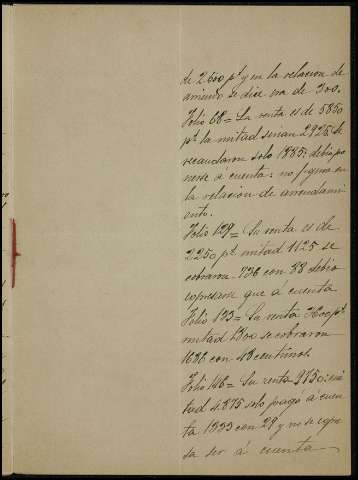 de 2600 pt y en la relacion de
arriendo se dice era de 300.
Folio 68 = La renta es de 5850
pt la mitad serian 2925: se
recaudaron solo 1885: debio po
nerse á cuenta: no figura en
la relacion de arrendami
ento.
Folio 129 = Su renta es de
2250 pt mitad 1125 se
cobraron 736 con 88 debio
espresarse que á cuenta
Folio 133 = La renta pt
mitad 1800 se cobraron
1688 con 48 centimos.
Folio 146 = Su renta 9750: mi
tad 4.875 solo pagó á cuen
ta 1333 con 29 y no se espre
sa ser á cuenta